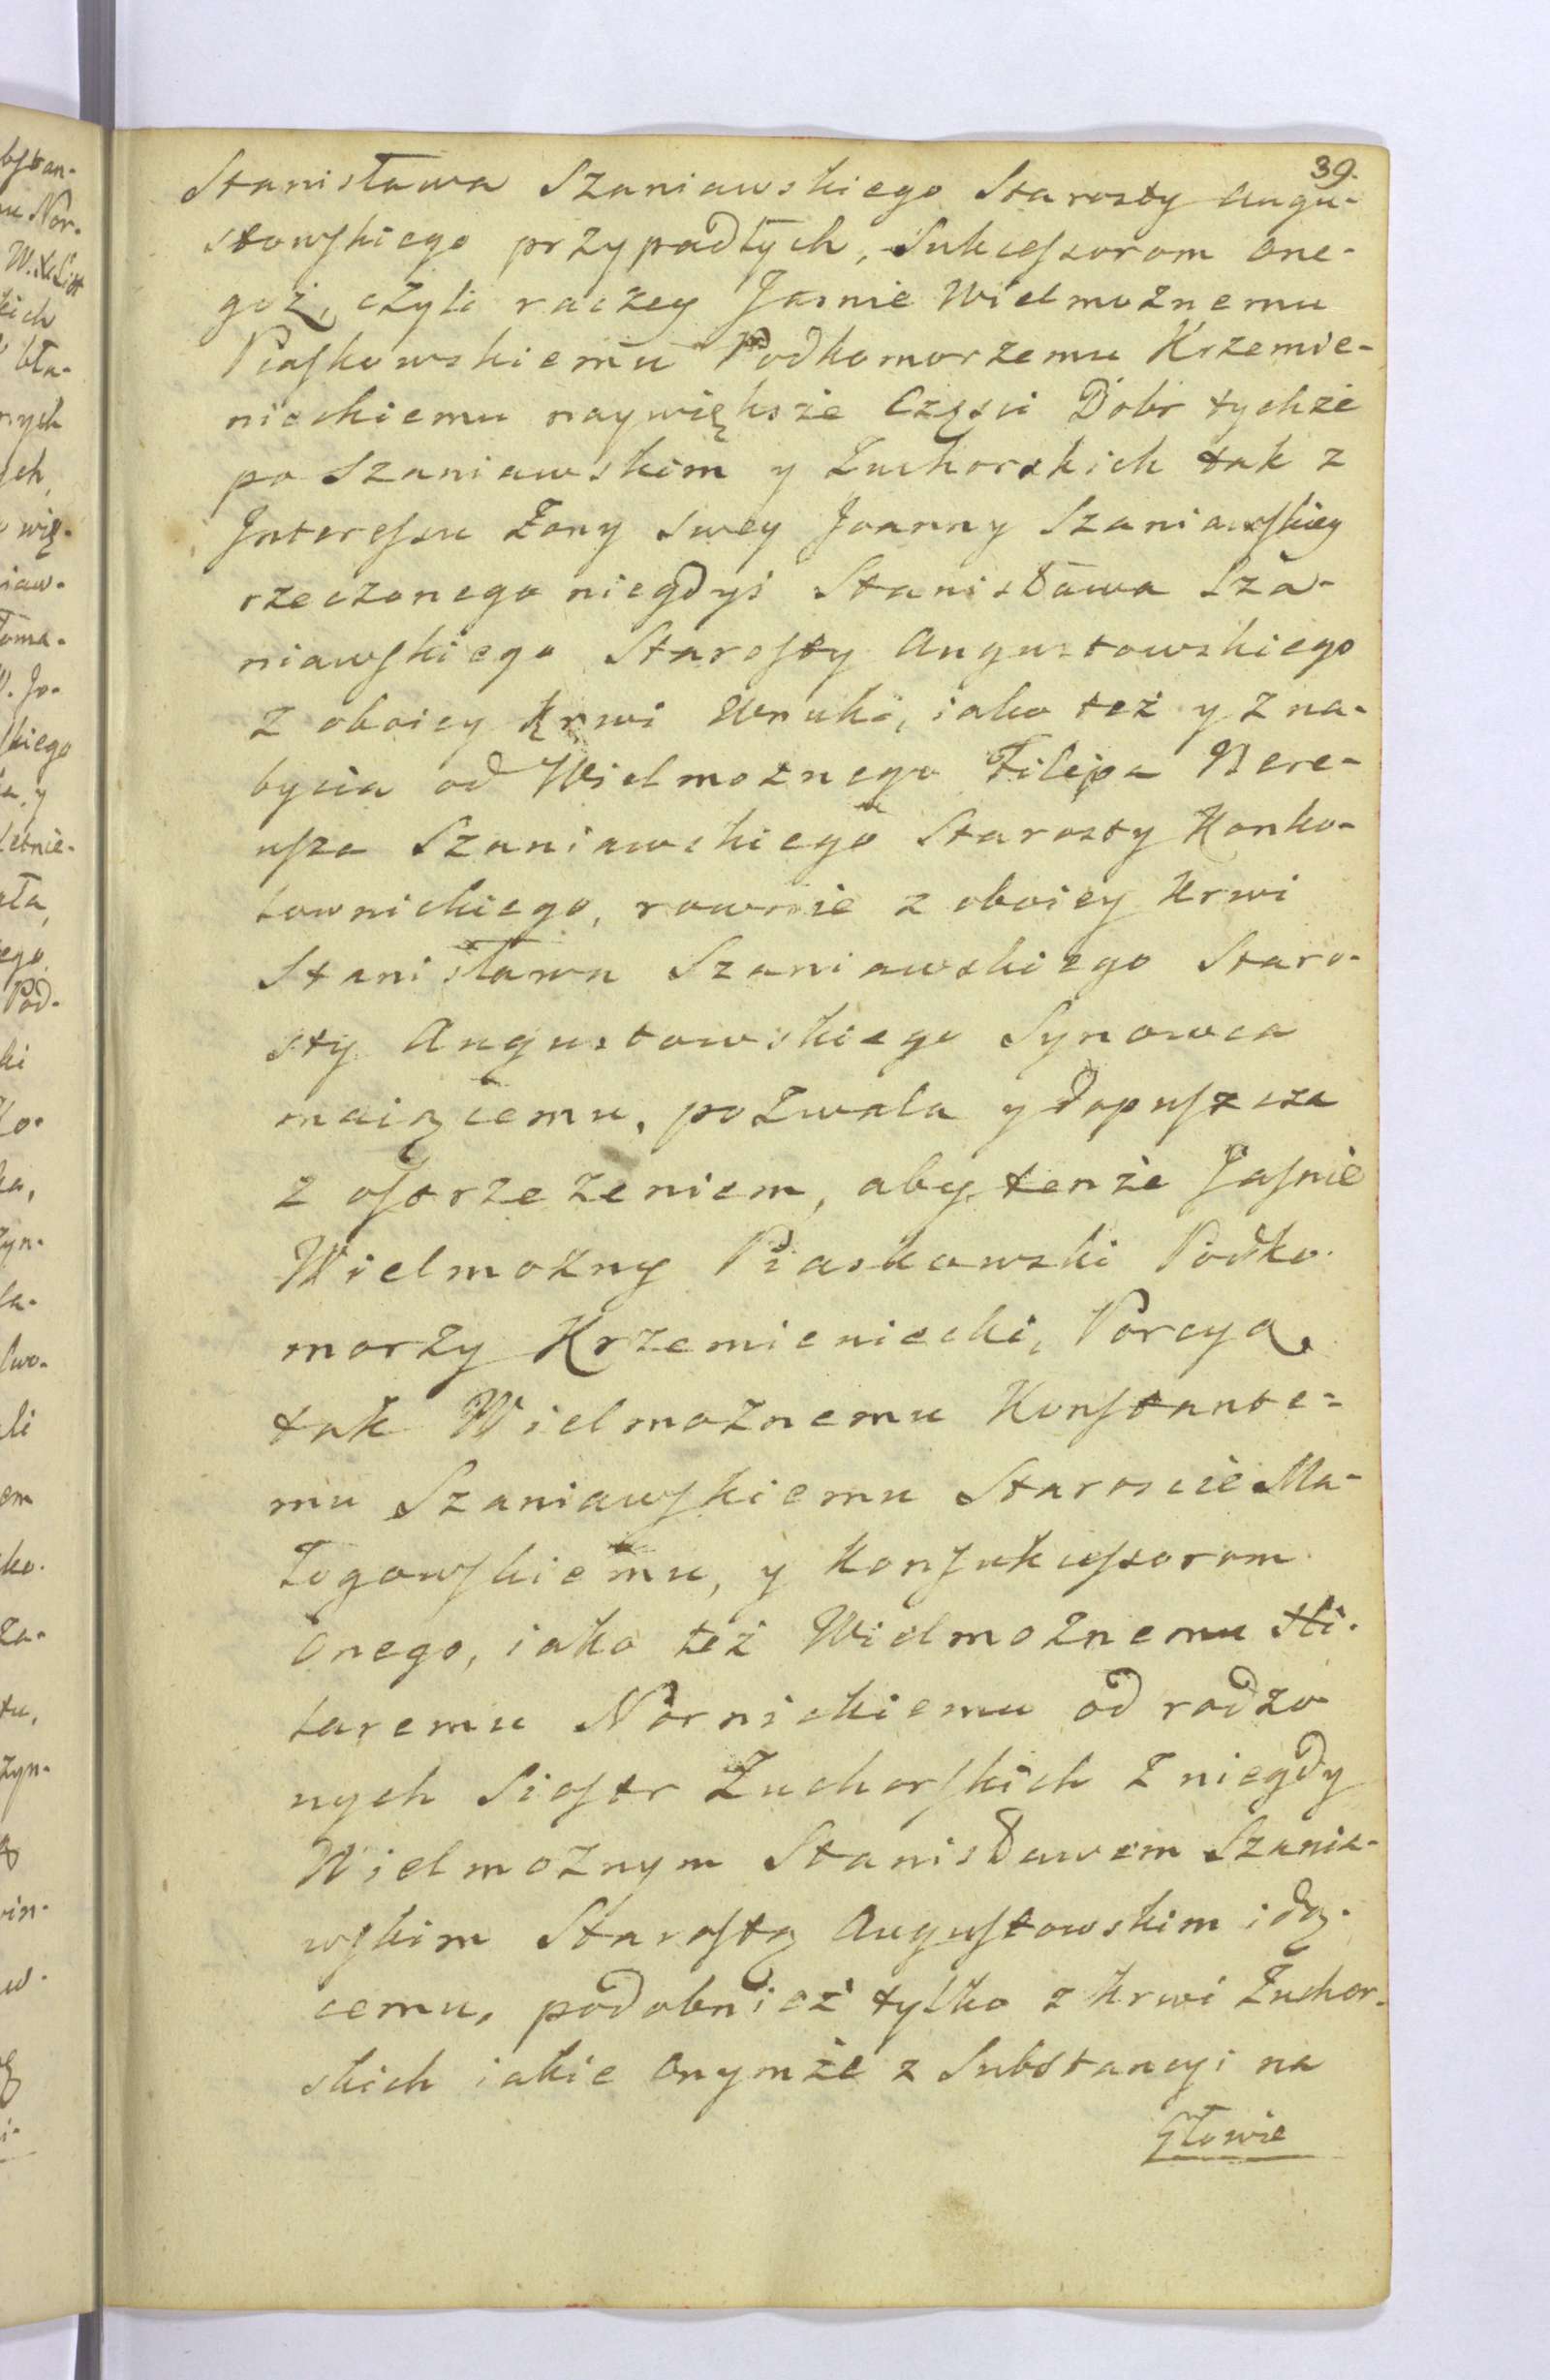 39.
Stanisława Szaniawskiego Starosty Augu-
stowskiego przypadłych, Sukcessorom one-
goż, czyli raczey Jasnie Wielmożnemu
Piaskowskiemu Podkomorzemu Krzemie-
nieckiemu naywiększe Części Dobr tychże
po Szaniawskim y Zuchorskich tak z
Interessu Zony swey Joanny Szaniawskiey
rzeczonego niegdyś Stanisława Sza-
niawskiego Starosty Augustowskiego
z oboiey Krwi Wnuki, iako też y z na-
bycia od Wielmożnego Filipa Nere-
usza Szaniawskiego Starosty Konko-
lownickiego, rownie z oboiey Krwi
Stanisława Szaniawskiego Staro-
sty Augustowskiego Synowca
maiącemu, pozwala y dopuszcza
z ostrzeżeniem, aby tenże Jasnie
Wielmożny Piaskowski Podko-
morzy Krzemieniecki, Porcyą
tak Wielmożnemu Konstante-
mu Szaniawskiemu Staroscie Ma-
łogowskiemu, y Konsukcessorom
onego, iako też Wielmożnemu Hi-
laremu Nornickiemu od rodzo
nych Siostr Zuchorskich z niegdy
Wielmożnym Stanisławem Szania-
wskim Starostą Augustowskim idą-
cemu, podobnież tylko z krwi Zuchor-
skich iakie onymże z Substancyi na
Głowie